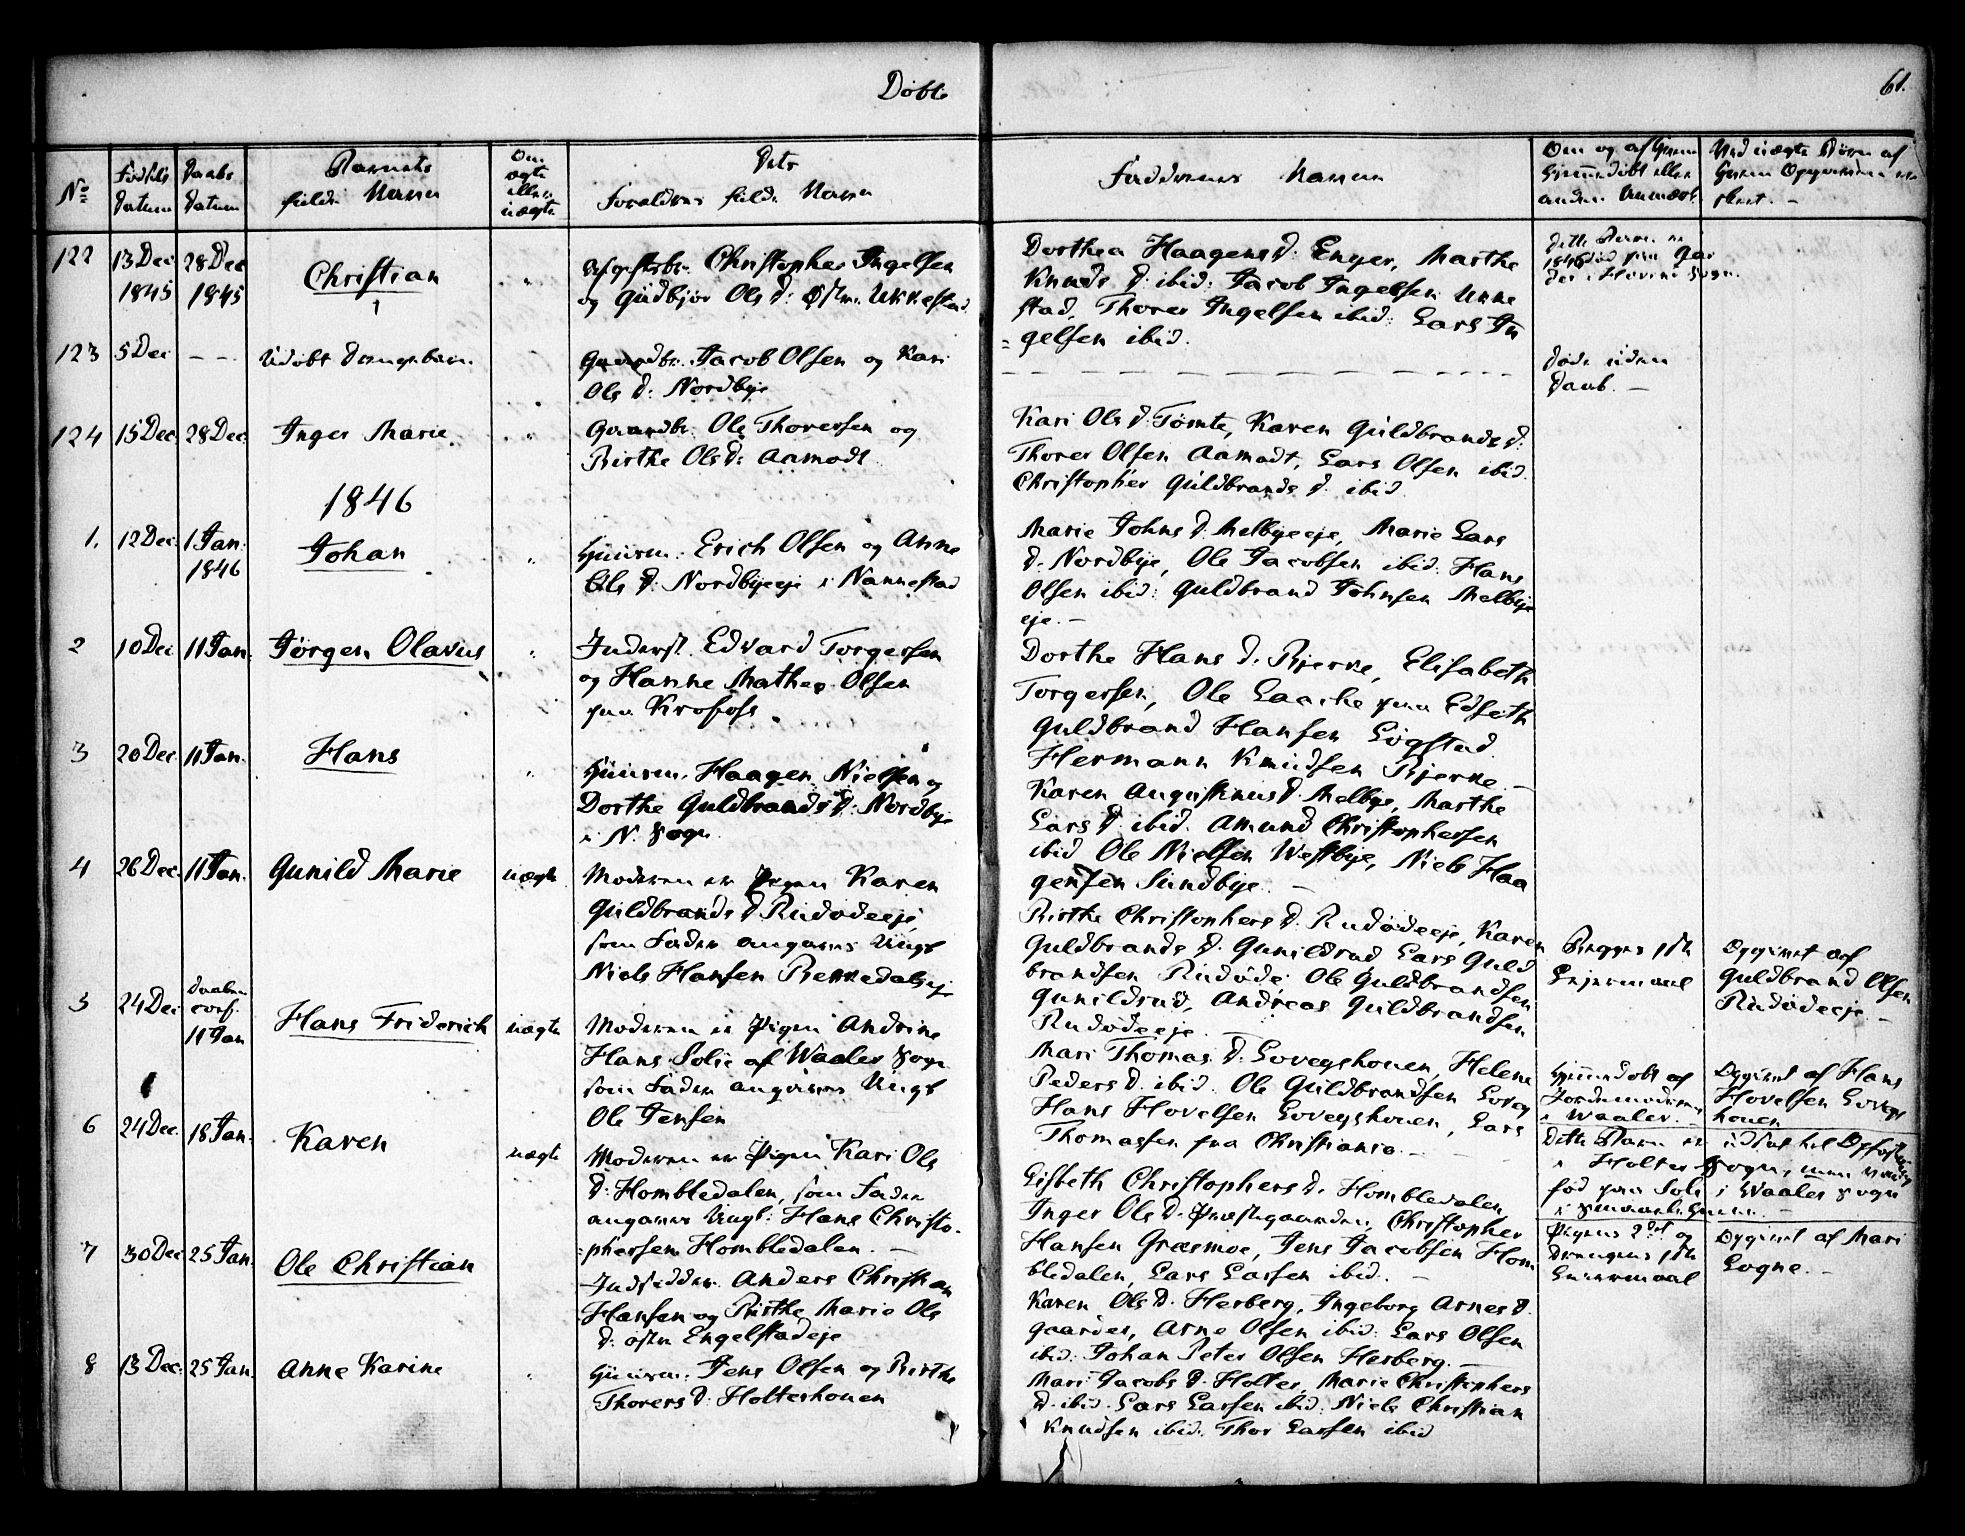 Døbte
61.
No
Fødsels Datum
Daabs Datum
Barnets fulde Navn
Om ægte eller uægte
Dets Forældres fulde Navn
Faddernes Navne
Om og af hvem hjemmedøbt eller anden Anmærk.
Ved uægte Børn af hvem Opgivelsen er skeet. –
122
13 Dec 1845
28 Dec 1845
Christian
"
Christopher Ingelsen
og Gudbjør Ols d: Østre Ukkestad
Dorthea Haagens d. Enger, Marthe
Knuds d. ibid: Jacob Ingelsen Ukke
stad, Thorer Ingelsen ibid: Lars In
=gelsen ibid.
dette Barn er
1846
123
5 Dec
– –
Udøbt Drengebarn
"
Gaardbr. Jacob Olsen og Kari
Ols d: Nordbye
Døde uden
Daab. –
124
15 Dec
28 Dec
Inger Marie.
"
Gaardbr. Ole Thorersen og
Birthe Ols d: Aamodt
Kari Ols d. Tømte, Karen Guldbrands d.
Thorer Olsen Aamodt, Lars Olsen ibid.
Christopher Guldbrands d. ibid
1846
1.
12 Dec.
1 Jan. 1846
Johan
"
Huusm. Erich Olsen og Anne
Ols d. Nordbyeeje i Nannestad
Marie Johns d. Melbyeeje, Marie Lars
d. Nordbye, Ole Jacobsen ibid: Hans
Olsen ibid: Guldbrand Johnsen Melbye
eje. –
2
10 Dec
11 Jan.
Jørgen Olavus
"
Inderst. Edvard Torgersen
og Hanne Mathea Olsen
paa Krofoss.
Dorthe Hans d. Bjerke, Elisabeth
Torgersen, Ole Laache paa Edseth
Guldbrand Hansen Løgstad
Hermann Knudsen Bjerke –
3
20 Dec
11 Jan.
Hans
"
Huusm. Haagen Nielsen og
Dorthe Guldbrands d: Nordbye
i N. Sogn
Karen Augustinus d. Melbye, Marthe
Lars d. ibid. Amund Christophersen
ibid Ole Nielsen Westbye, Niels Haa
gensen Sundbye. –
4
26 Dec.
11 Jan.
Gunild Marie
uægte
Moderen er Pigen Karen
Guldbrands d. Rudødeeje,
som Fader angaves Ungk
Niels Hansen
Birthe Christophers d. Rudødeeje, Karen
Guldbrands d. Gunildrud Lars Guld
brandsen Rudøde, Ole Guldbrandsen
Gunildrud, Andreas Guldbrandsen
Rudødeeje. –
Begges 1ste
Lejermaal
Opgivet af
Guldbrand Olsen
Rudødeeje –
5
24 Dec
Daaben conf. 11 Jan
Hans Friderich
uægte
Moderen er Pigen Andrine
Hans Solie af Waaler Sogn
som Fader angives Ungk
Ole Jensen
Mari Thomas d. Lovegshouen, Helene
Peders d. ibid. Ole Guldbrandsen Loveg
Hans Hovelsen Lovegshouen, Lars
Thomassen fra Christiania. –
Hjemmedøbt af
Jordemoderen
i Waaler. –
Opgivet af Hans
Hovelsen Lovegs
houen
6
24 Dec.
18 Jan.
Karen
uægte
Moderen er Pigen Kari Ols
d. Hombledalen, som Fader
angaves Ungk: Hans Christo-
=phersen Hombledalen. –
Lisbeth Christophers d. Hombledalen,
Inger Ols d. Præstegaarden, Christopher
Hansen Græsmoe, Jens Jacobsen Hom
bledalen, Lars Larsen ibid. –
Dette Barn er udsat til Opfostring
i Holter Sogn, men
fød paa Soli i Waaler Sogn
Pigens 2det og
Drengens 1ste
Leiermaal
Opgivet af Mari
Logne. –
7
30 Dec
25 Jan.
Ole Christian
Indsidder Anders Christian
Hansen og Birthe Marie Ols
d: østre Engelstadeje
Karen Ols d. Herberg, Ingeborg Arnes d.
gaarder, Arne Olsen ibid: Lars Olsen
ibid: Johan Peter Olsen Herberg. –
8
13 Dec.
25 Jan.
Anne Karine
"
Huusm. Jens Olsen og Birthe
Thorers d. Holterhouen
Mari Jacobs d. Holter, Marie Christophers
d. ibid. Lars Larsen ibid: Niels Christian
Knudsen ibid. Thor Larsen ibid